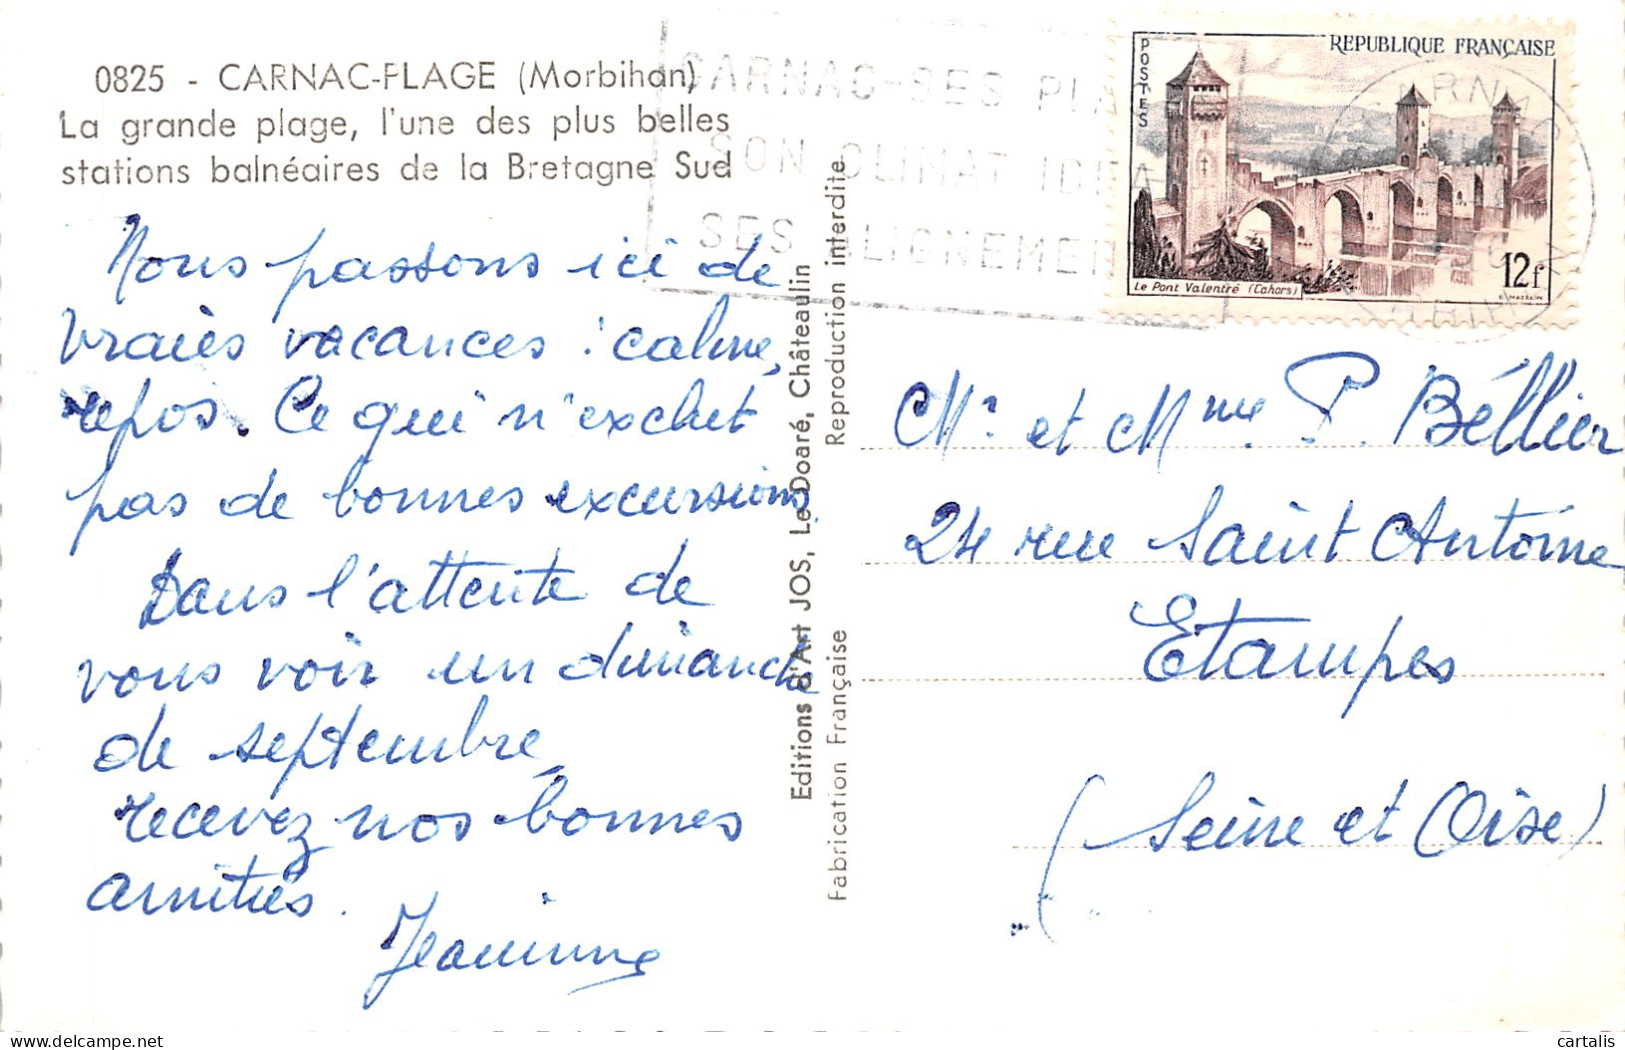 0825 - CARNAC-PLAGE (Morbihan)
La grande plage, l'une des plus belles
stations balnéaires de la Bretagne Sud
CARNAC-SES PLA
SON CLIMAT IDEA
SES ALIGNEMEN
POSTES
REPUBLIQUE FRANÇAISE
Le Pont Valentré (Cahors)
12f
Nous passons ici de
vraies vacances : calme,
repos. Ce qui n'exclut
pas de bonnes excursions.
Dans l'attente de
vous voir un dimanche
de septembre,
recevez nos bonnes
amitiés.
Jeannine
Editions d'Art JOS, Le Doaré, Châteaulin
Fabrication Française
Reproduction interdite
Mr et Mme P. Béllier
24 rue Saint Antoine
Etampes
(Seine et Oise)
cartalis